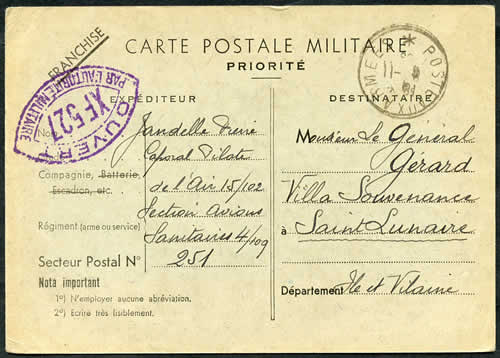 FRANCHISE
CARTE POSTALE MILITAIRE
PRIORITÉ
OUVERT
XF 527
PAR L'AUTORITÉ MILITAIRE
POSTE AUX ARMEES
11-
EXPÉDITEUR
Nom
Jandelle Pierre
Caporal Pilote
Compagnie, Batterie,
Escadron, etc.
de l'Air 15/102
Section Avions
Régiment (arme ou service)
Sanitaires 4/109
Secteur Postal N° 251
Nota important
1°) N'employer aucune abréviation.
2°) Ecrire très lisiblement.
DESTINATAIRE
Monsieur Le Général
Gerard
Villa Souvenance
à Saint Lunaire
Département Ile et Vilaine